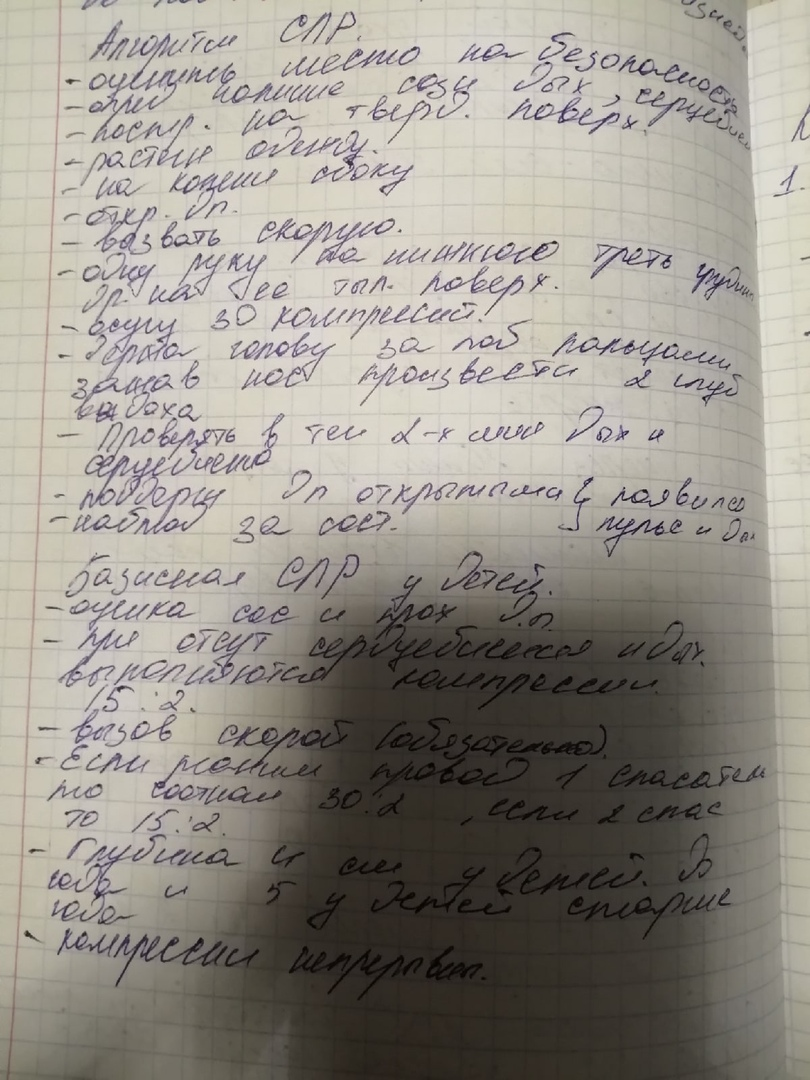 Алгоритм СЛР.
- оценить место на безопасность
- наличие созн дых, сердцебиен
- постр. на тверд. поверх.
- растегн одежду.
- на колени сбоку
- откр. дп.
- вызвать скорую.
- одну руку на нижнюю треть грудины
др на ее тыл. поверх.
- осущ 30 компрессий.
- держа голову за лоб пальцами
зажав нос произвести 2 глуб
вдоха
- Проверять в теч 2-х мин дых и
сердцебиение
- поддерж дп открытыми } появился
- наблюд за сост. пульс и дых
Базисная СЛР у детей.
- оценка сос и прох д.п.
- при отсут сердцебиения и дых.
выполняются компрессии.
15:2.
- вызов скорой (обязательно).
- Если реаним провод 1 спасатель
то соотнош 30:2, если 2 спас
то 15:2.
- Глубина 4 см у детей. до
года и 5 у детей старше
года
- компрессии непрерывны.
1.